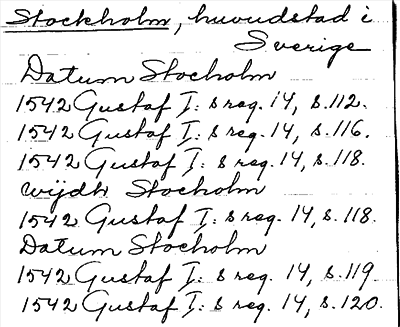 Stockholm, huvudstad i
Sverige
Datum Stocholm
1542 Gustaf I: s reg. 14, s. 112.
1542 Gustaf I: s reg. 14, s. 116.
1542 Gustaf I: s reg. 14, s. 118.
wijdh Stocholm
1542 Gustaf I: s reg. 14, s. 118.
Datum Stocholm
1542 Gustaf I: s reg. 14, s. 119.
1542 Gustaf I: s reg. 14, s. 120.